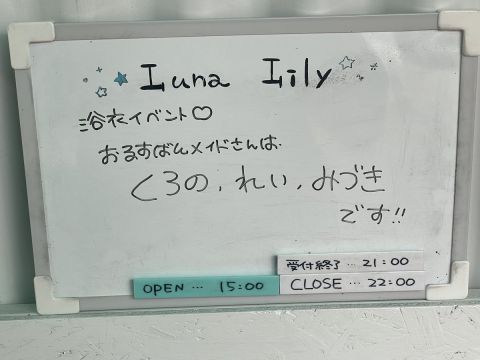 Luna Lily
浴衣イベント♡
おるすばんメイドさんは
くろの,れい,みづき
です!!
受付終了… 21:00
OPEN… 15:00
CLOSE… 22:00